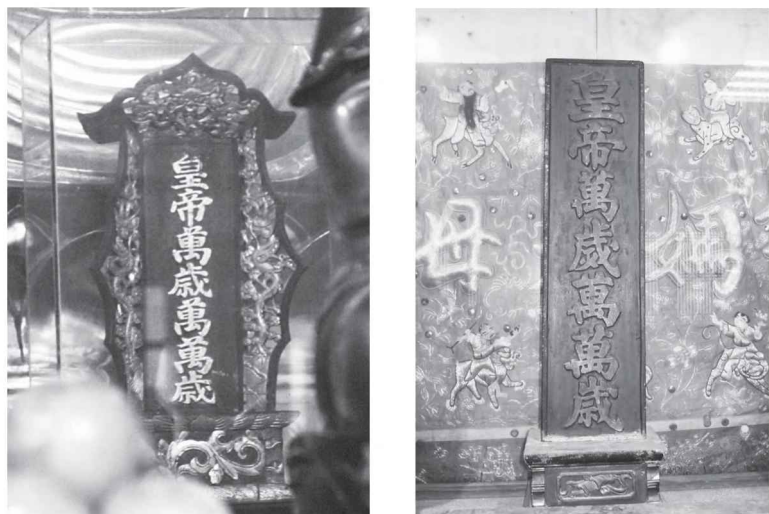 皇帝萬歲萬萬歲
皇帝萬歲萬萬歲
母
媽